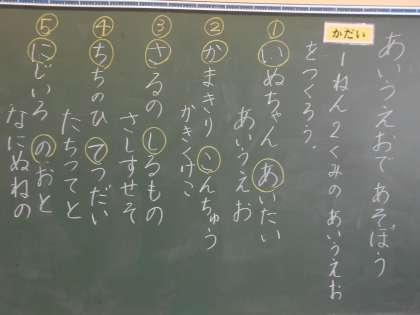 あいうえおで あそぼう
かだい
1ねん2くみの あいうえお
をつくろう。
① いぬちゃん あいたい
あいうえお
② かまきり こんちゅう
かきくけこ
③ さるの しるもの
さしすせそ
④ ちちのひ てつだい
たちつてと
⑤ にじいろ のおと
なにぬねの